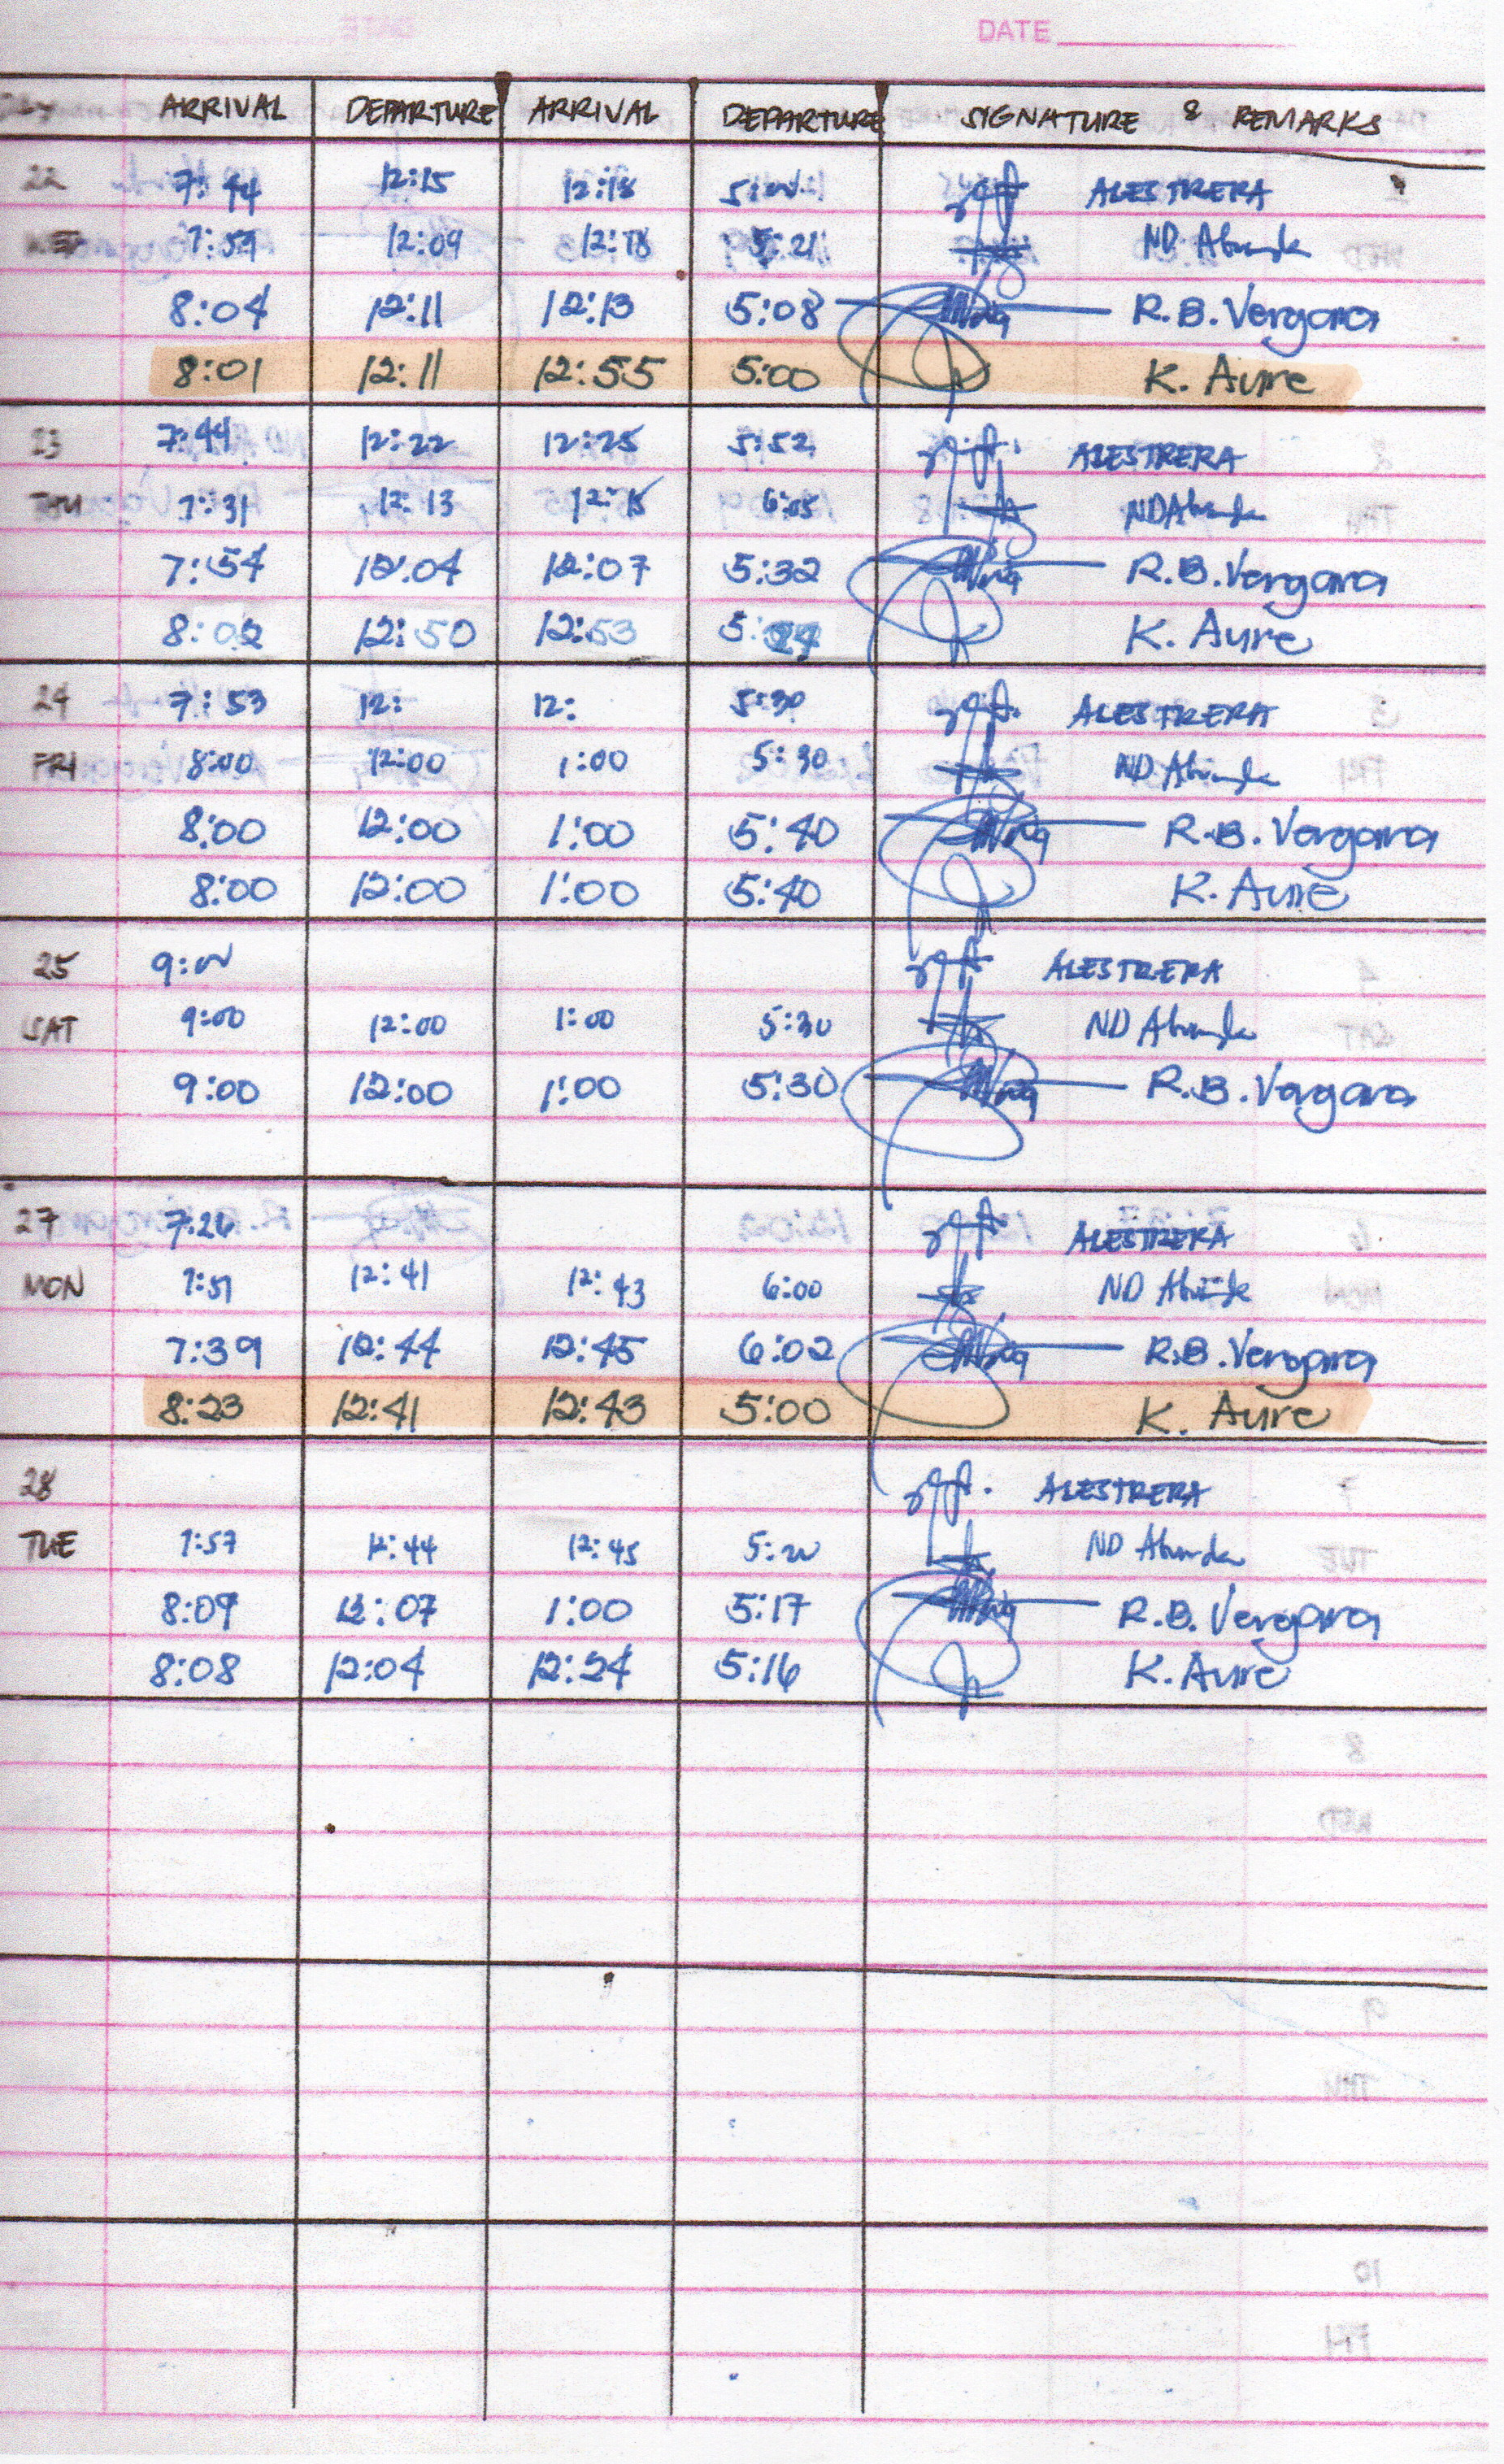 DATE
DAY ARRIVAL DEPARTURE ARRIVAL DEPARTURE SIGNATURE & REMARKS
22 7:44 12:15 12:18 ALESTRERA
WED 7:59 12:09 12:18 5:21 ND Abunda
8:04 12:11 12:13 5:08 R.B. Vergara
8:01 12:11 12:55 5:00 K. Aure
23 7:49 12:22 12:25 5:52 ALESTRERA
THU 7:31 12:13 12:15 6:05 ND Abunda
7:54 12:04 12:07 5:32 R.B. Vergara
8:02 12:50 12:53 K. Aure
24 7:53 12: 12: 5:30 ALESTRERA
FRI 8:00 12:00 1:00 5:30 ND Abunda
8:00 12:00 1:00 5:40 R.B. Vergara
8:00 12:00 1:00 5:40 K. Aure
25 9:00 ALESTRERA
SAT 9:00 12:00 1:00 5:30 ND Abunda
9:00 12:00 1:00 5:30 R.B. Vergara
27 7:26 ALESTRERA
MON 7:51 12:41 12:43 6:00 ND Abunda
7:39 12:44 12:45 6:02 R.B. Vergara
8:23 12:41 12:43 5:00 K. Aure
28 ALESTRERA
TUE 7:57 12:44 12:45 ND Abunda
8:09 12:07 1:00 5:17 R.B. Vergara
8:08 12:04 12:24 5:16 K. Aure